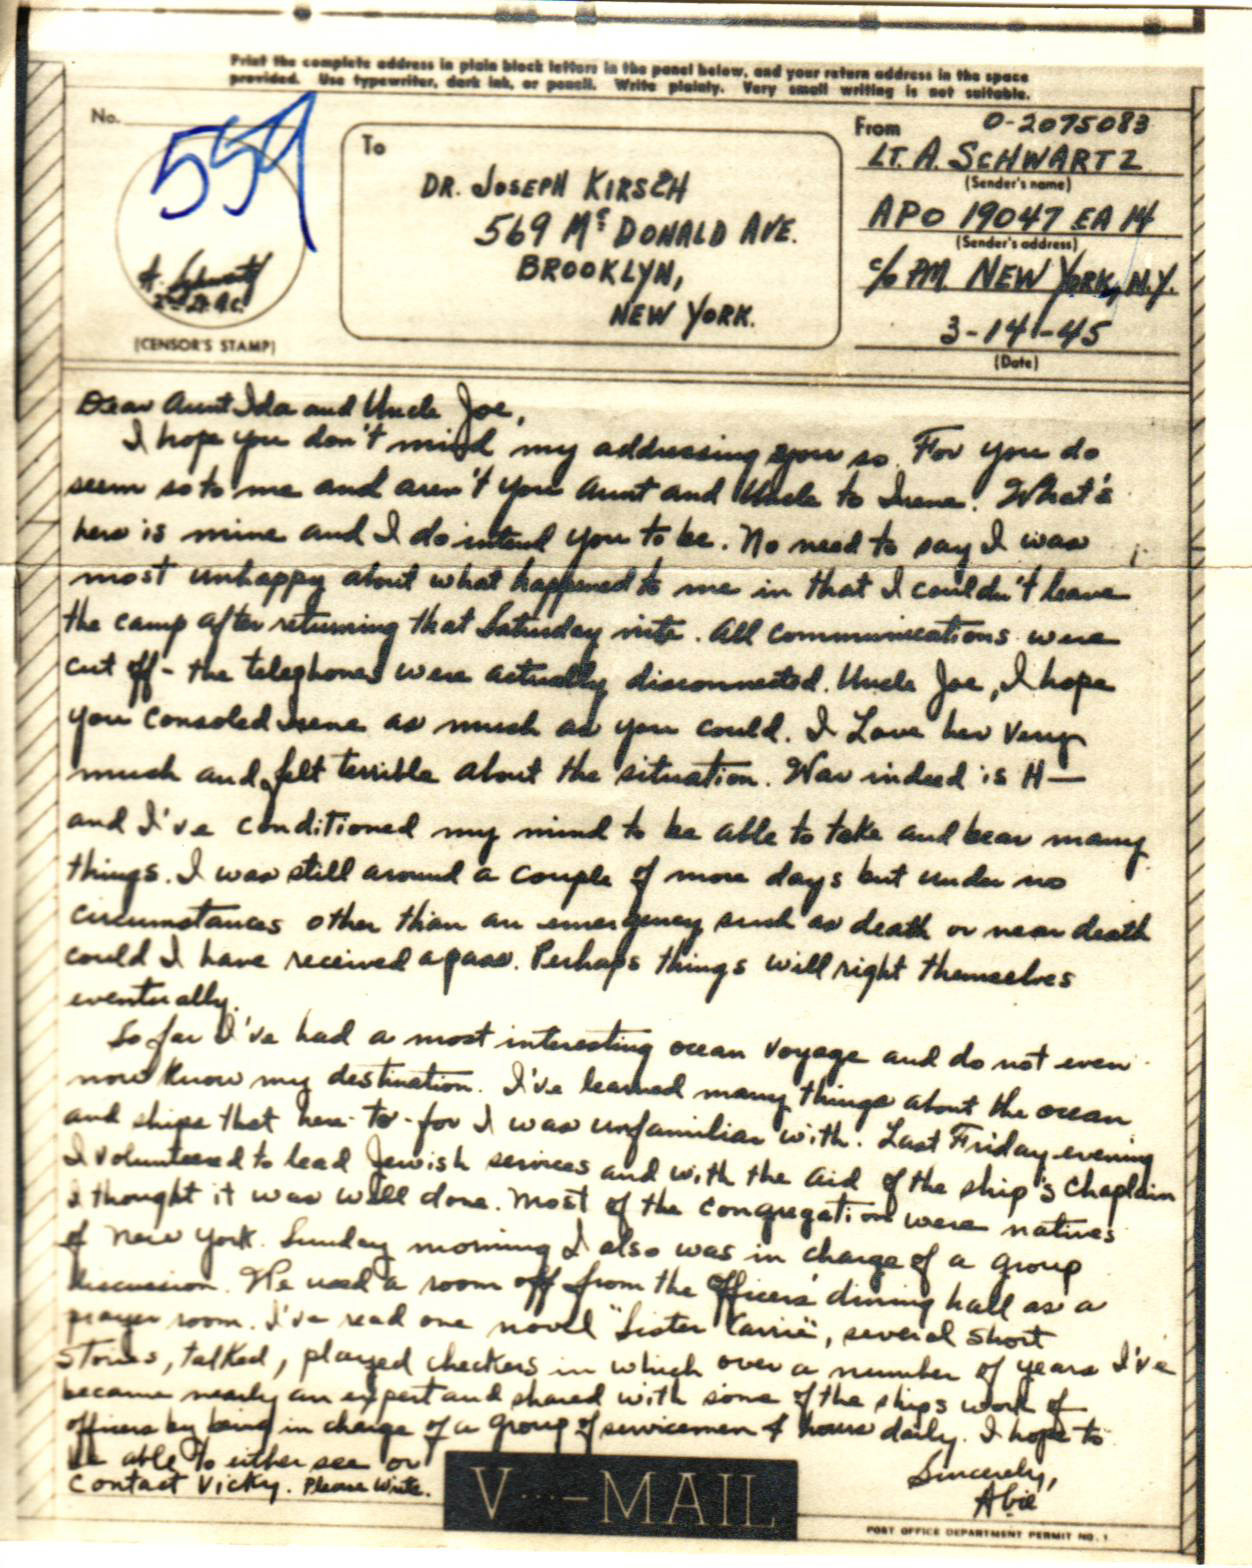 Print the complete address in plain block letters in the panel below, and your return address in the space
provided. Use typewriter, dark ink, or pencil. Write plainly. Very small writing is not suitable.
No.
559
A. Schwartz
2nd Lt. A.C.
(CENSOR'S STAMP)
To
DR. JOSEPH KIRSCH
569 Mc DONALD AVE.
BROOKLYN,
NEW YORK.
From
O-2075083
LT. A. SCHWARTZ
(Sender's name)
APO 19047 EA 14
(Sender's address)
c/o PM. NEW YORK, N.Y.
3-14-45
(Date)
Dear Aunt Ida and Uncle Joe,
I hope you don't mind my addressing you so. For you do
seem so to me and aren't you Aunt and Uncle to Irene! What's
hers is mine and I do intend you to be. No need to say I was
most unhappy about what happened to me in that I couldn't leave
the camp after returning that Saturday nite. All communications were
cut off - the telephones were actually disconnected. Uncle Joe, I hope
you consoled Irene as much as you could. I Love her very
much and felt terrible about the situation. War indeed is H—
and I've conditioned my mind to be able to take and bear many
things. I was still around a couple of more days but under no
circumstances other than an emergency such as death or near death
could I have received a pass. Perhaps things will right themselves
eventually.
So far I've had a most interesting ocean voyage and do not even
now know my destination. I've learned many things about the ocean
and ships that here-to-for I was unfamiliar with. Last Friday evening
I volunteered to lead Jewish services and with the aid of the ship's chaplain
I thought it was well done. Most of the congregation were natives
of New York. Sunday morning I also was in charge of a group
discussion. We used a room off from the officers' dining hall as a
prayer room. I've read one novel "Sister Carrie", several short
stories, talked, played checkers in which over a number of years I've
became nearly an expert and shared with some of the ships work of
officers by being in charge of a group of servicemen 4 hours daily. I hope to
be able to either see or
contact Vicky. Please write.
Sincerely,
Abie
V···—MAIL
POST OFFICE DEPARTMENT PERMIT NO. 1